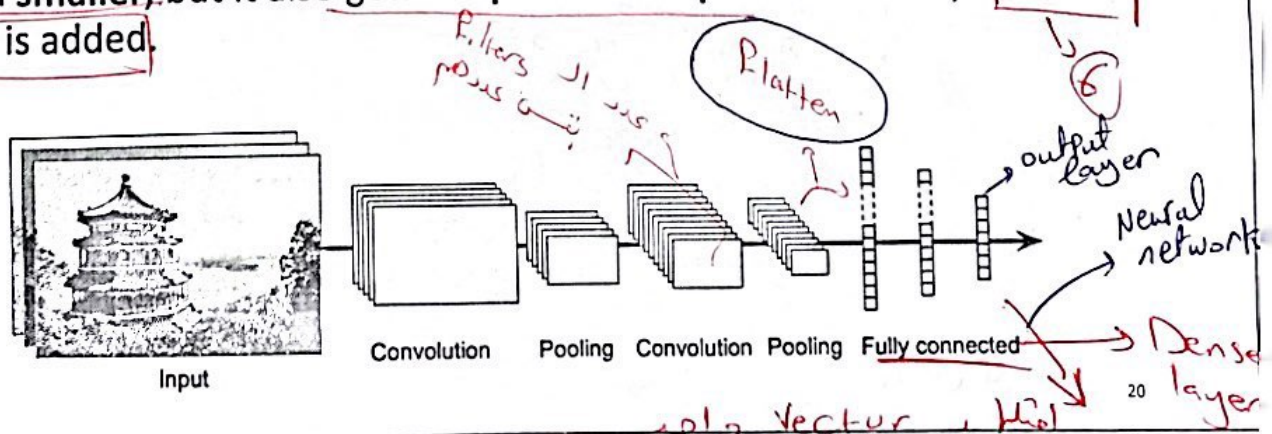 is added.
Filters عدد ال
Flatten
6
output
layer
Neural
network
Convolution
Pooling
Convolution
Pooling
Fully connected
Dense
layer
Input
20
vectur